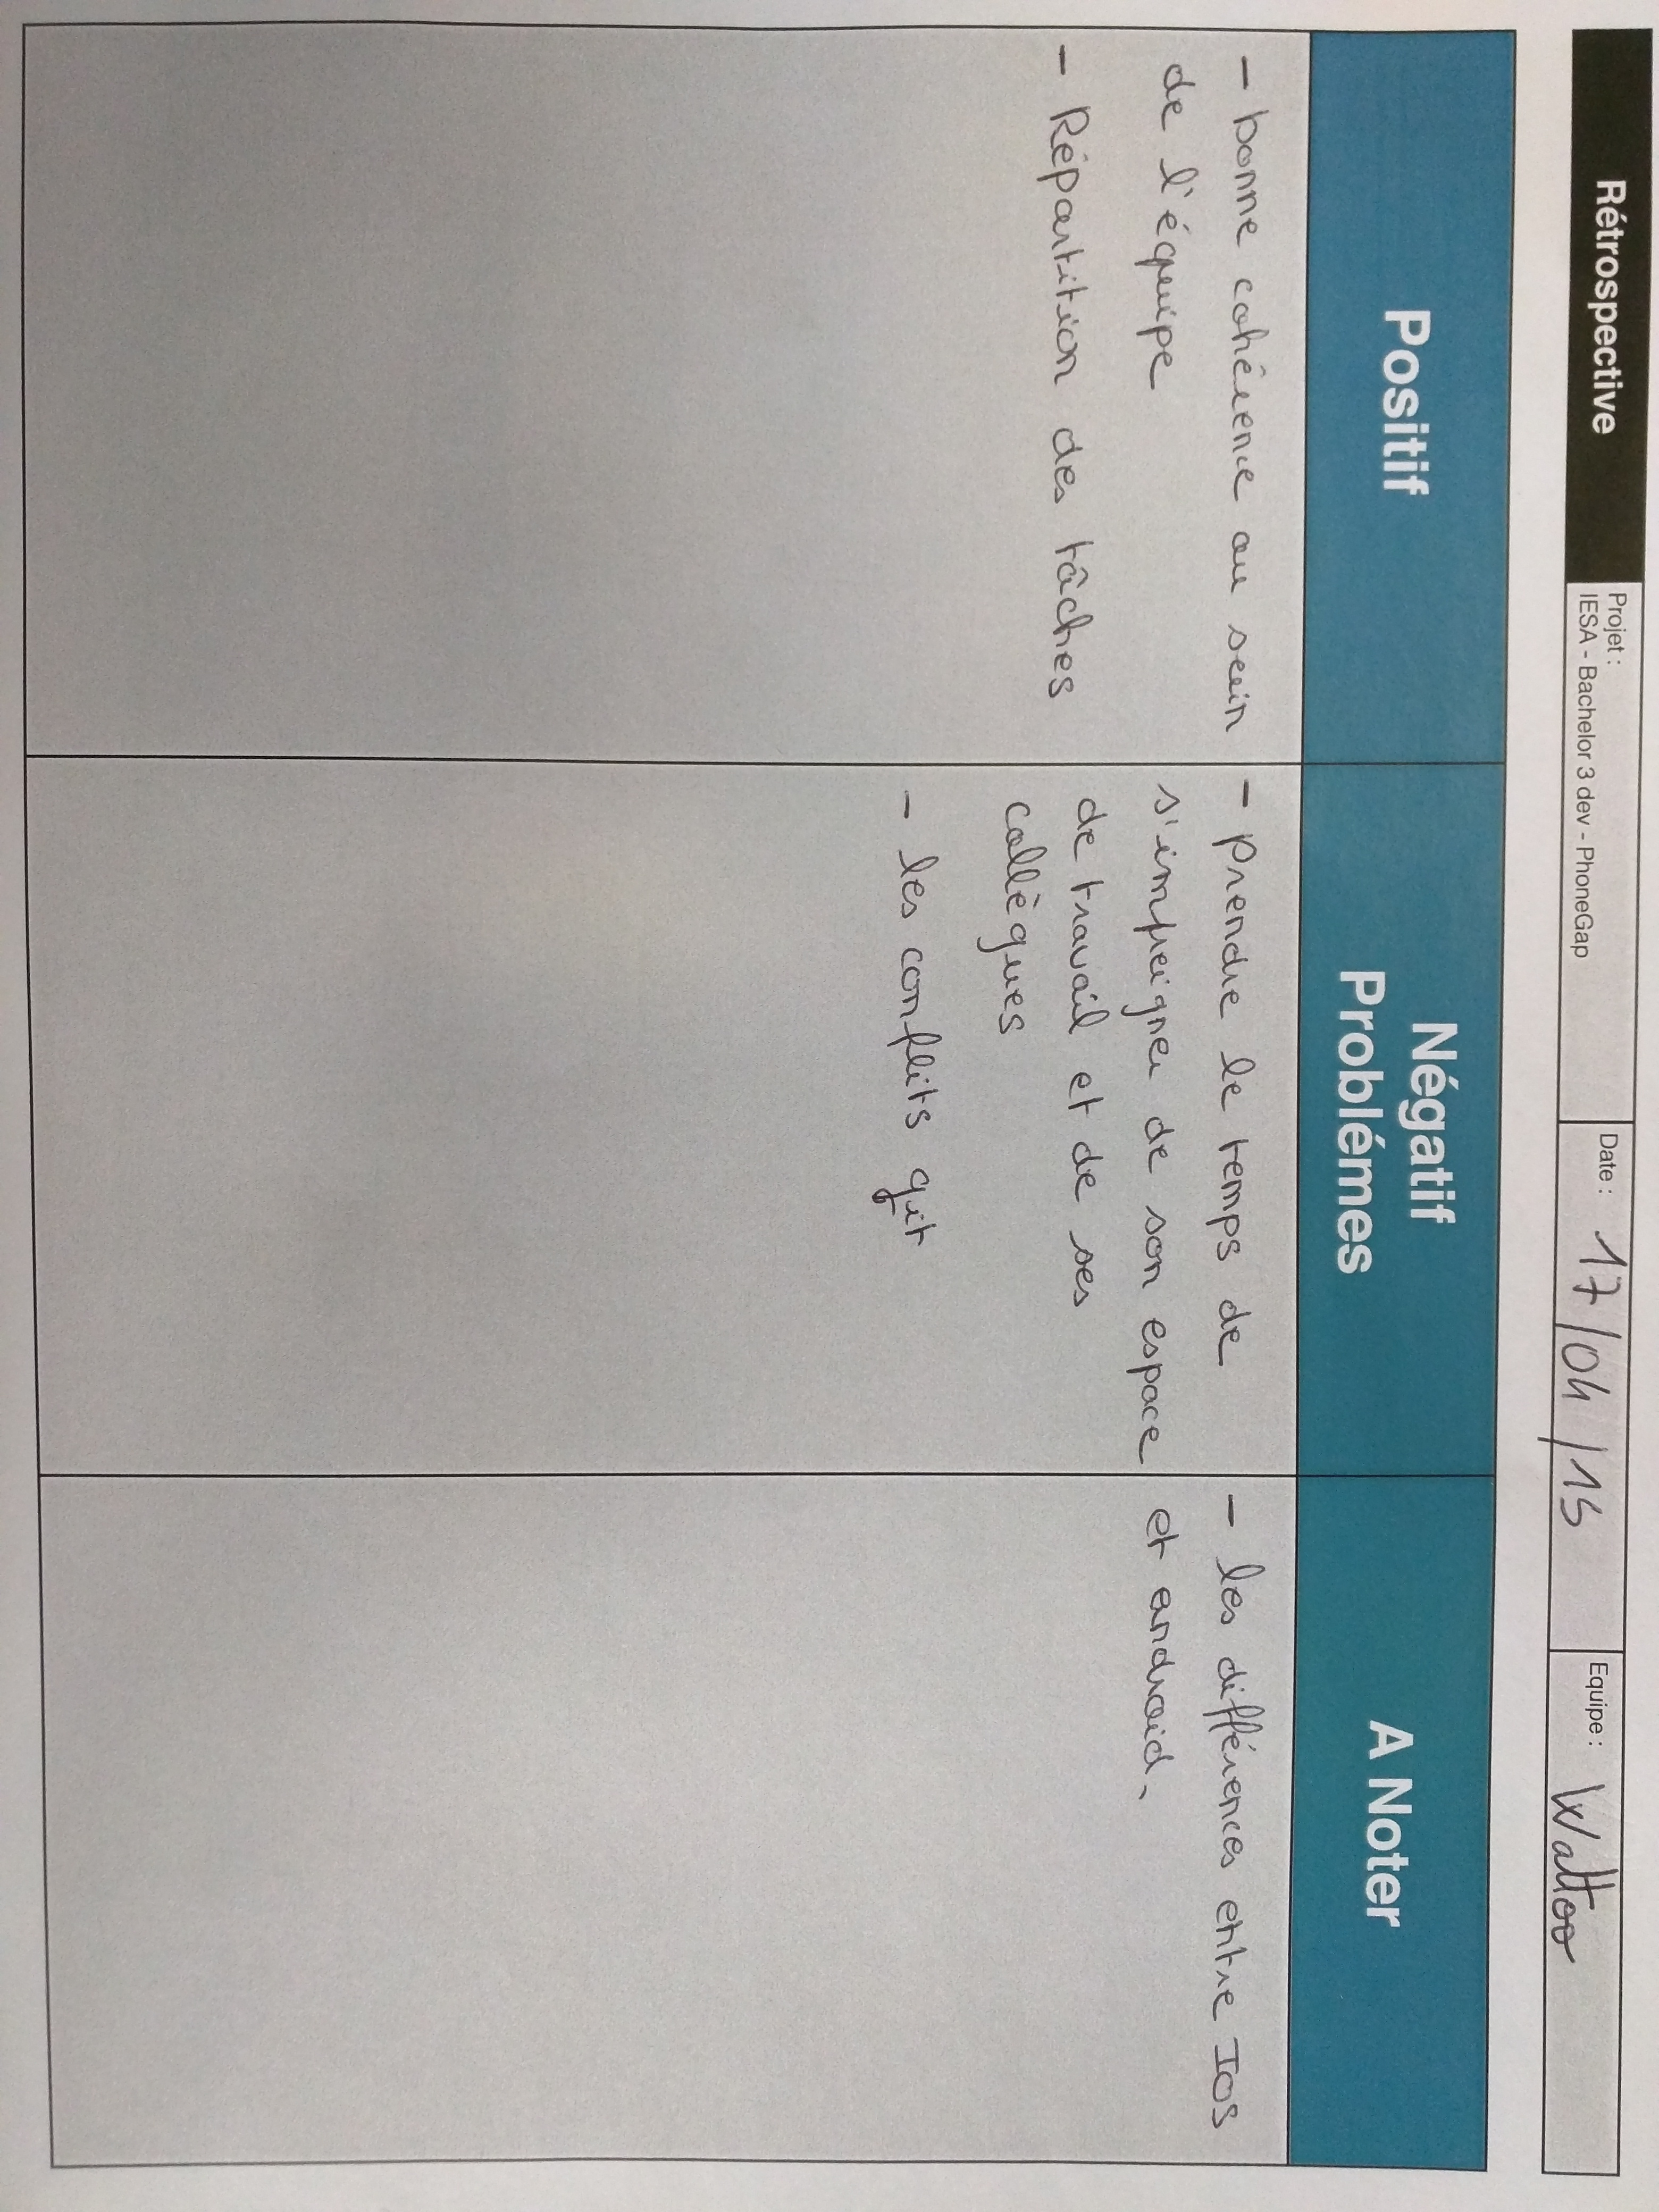 Rétrospective
Projet :
IESA - Bachelor 3 dev - PhoneGap
Date : 17/04/15
Equipe : Waltoo
Positif
- bonne cohérence au sein
de l'équipe
- Répartition des tâches
Négatif
Problémes
- prendre le temps de
s'impreigner de son espace
de travail et de ses
collègues
- les conflits git
A Noter
- les différences entre IOS
et android.